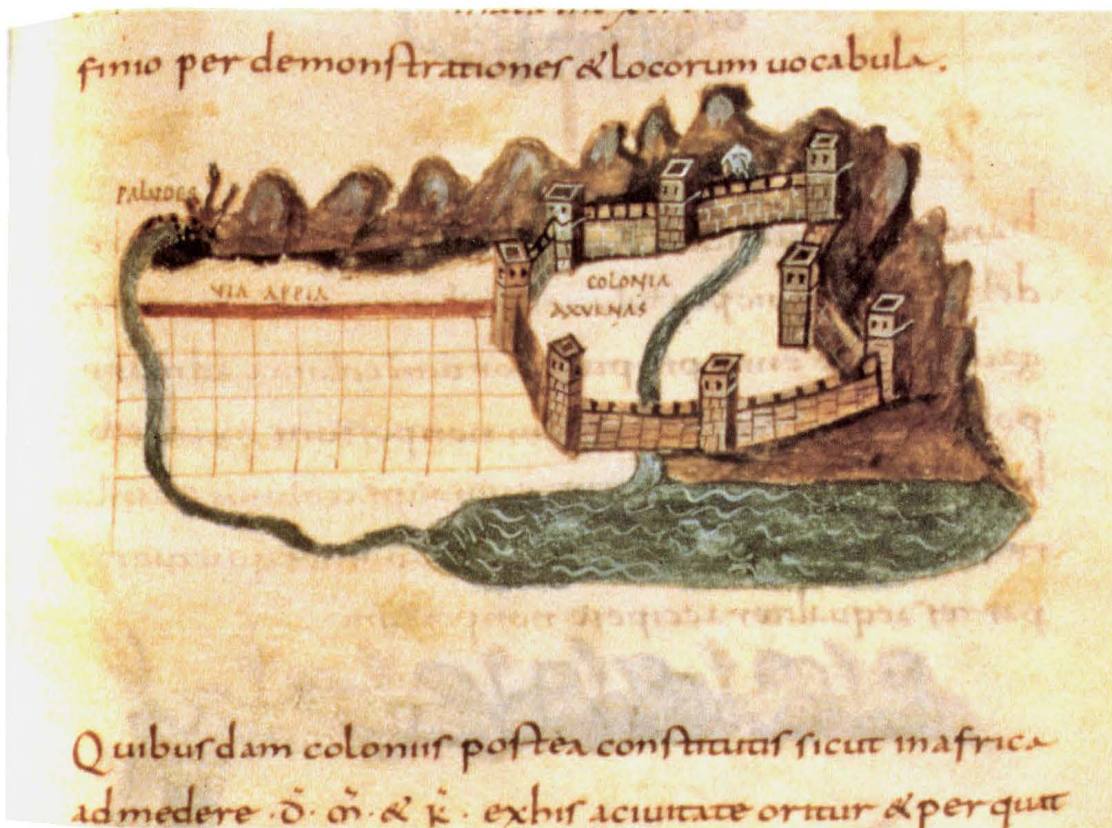 finio per demonstrationes & locorum uocabula.
PALUDES
VIA APPIA
COLONIA
AXVRNAS
Quibusdam coloniis postea constitutis sicut inafrica
admedere · d̄ · m̄ · & k̄ · exhis aciuitate oritur & per quat